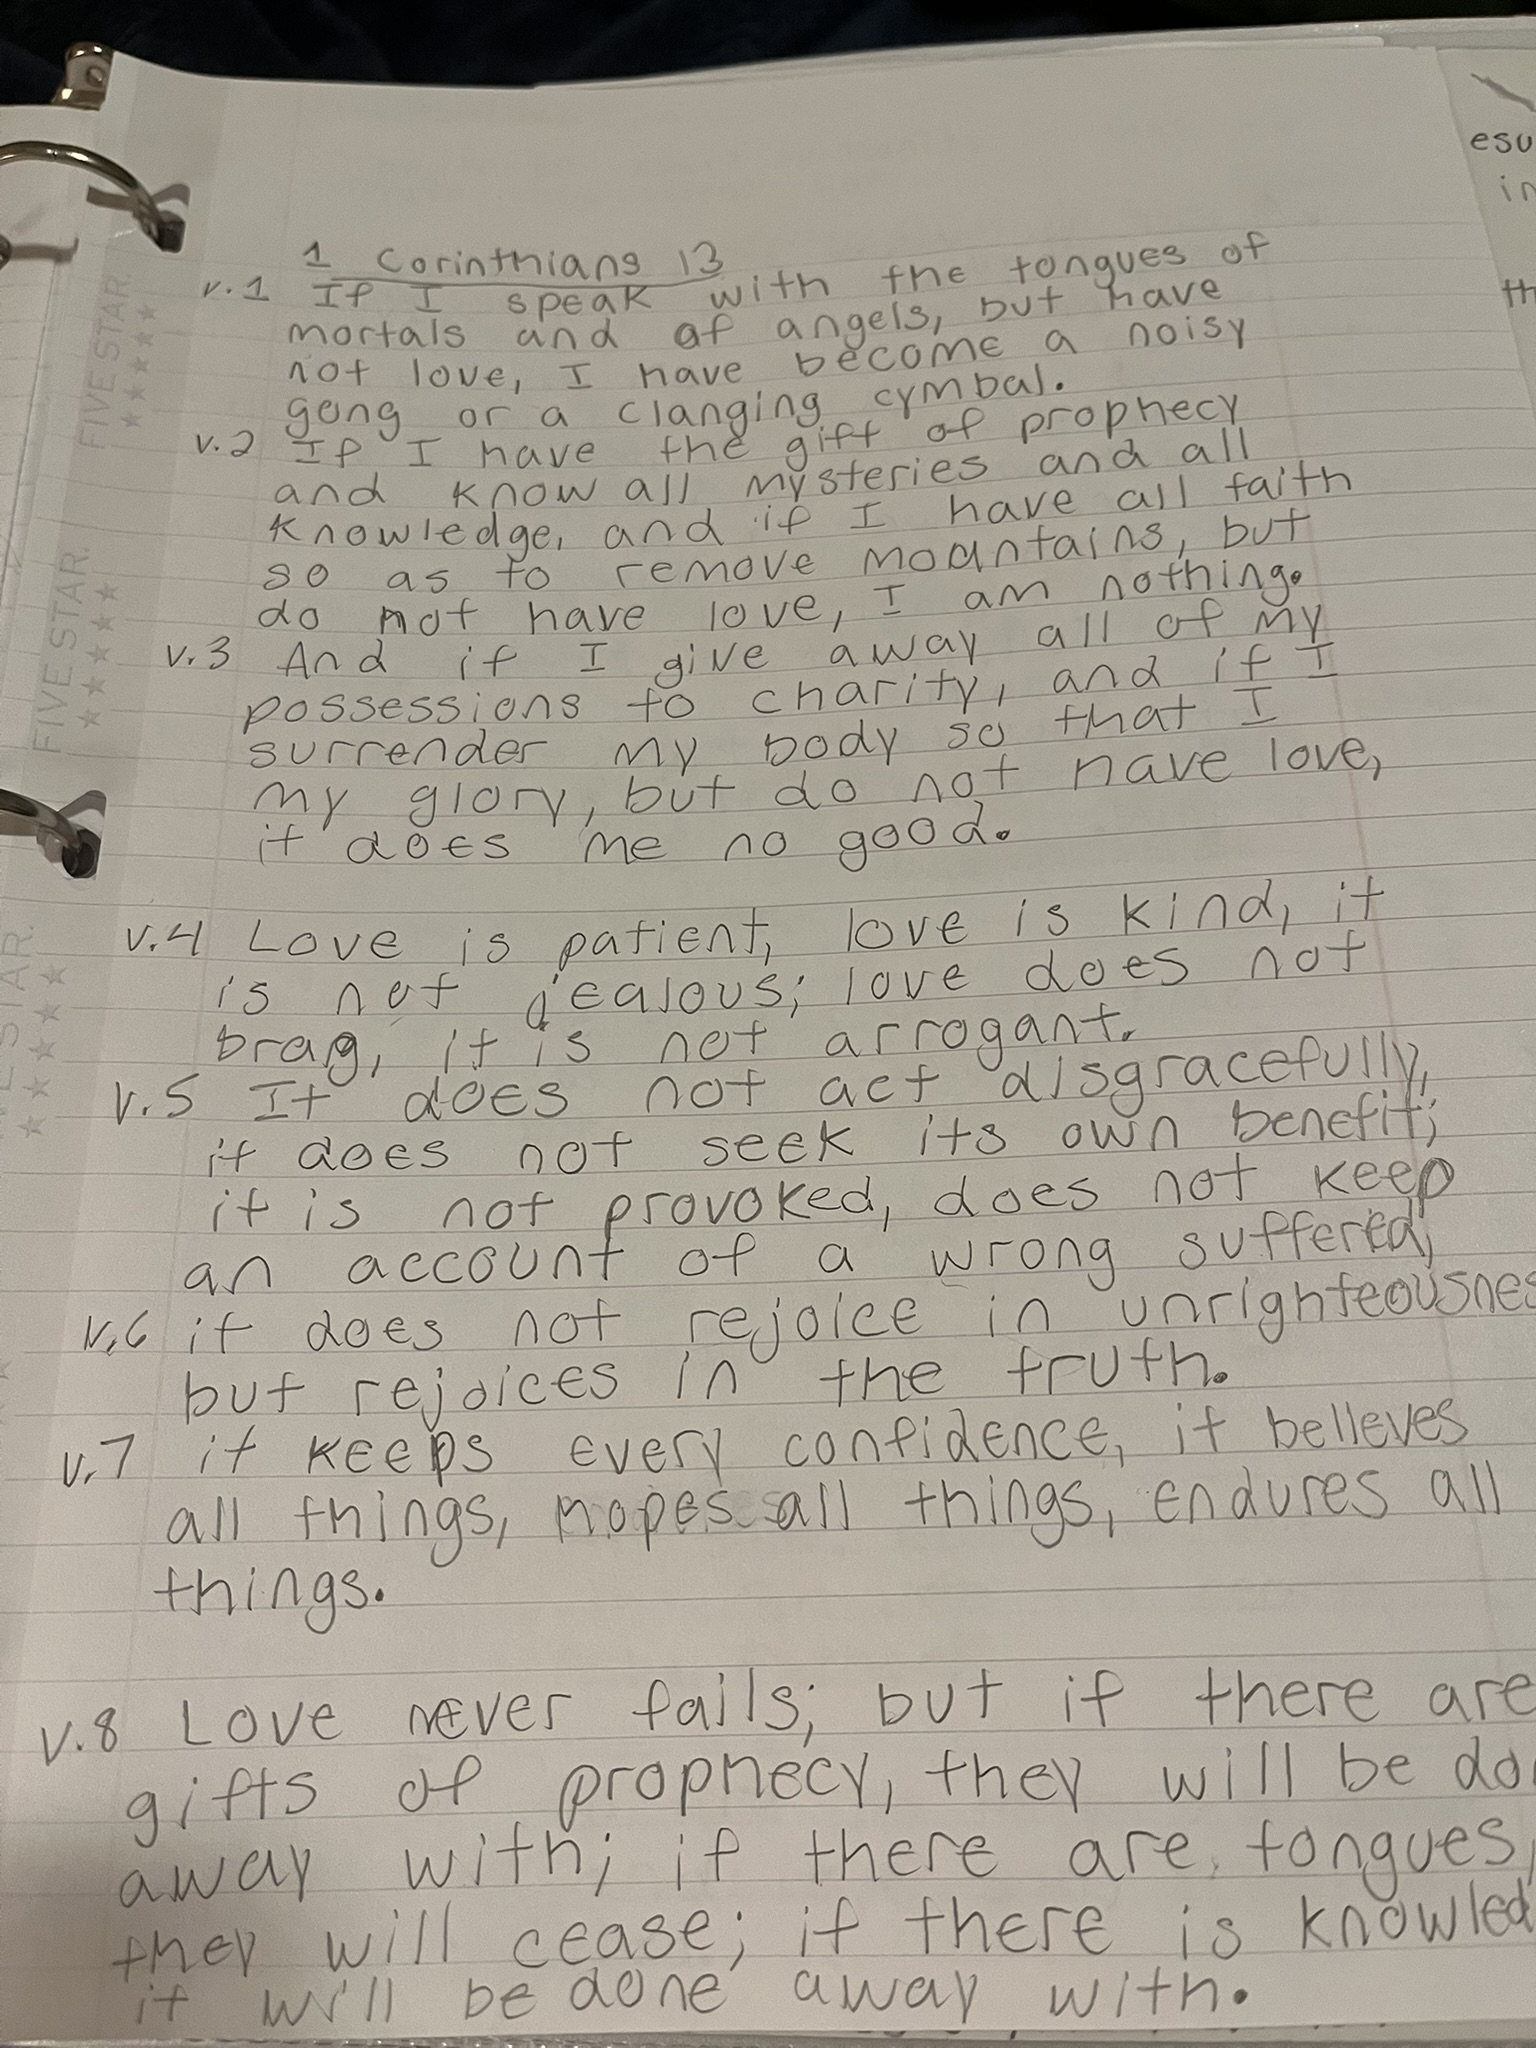 1 Corinthians 13
v.1 If I speak with the tongues of
mortals and of angels, but have
not love, I have become a noisy
gong or a clanging cymbal.
v.2 If I have the gift of prophecy
and know all mysteries and all
knowledge, and if I have all faith
so as to remove mountains, but
do not have love, I am nothing.
v.3 And if I give away all of my
possessions to charity, and if I
surrender my body so that I
my glory, but do not have love,
it does me no good.
v.4 Love is patient, love is kind, it
is not jealous; love does not
brag, it is not arrogant.
v.5 It does not act disgracefully,
it does not seek its own benefit;
it is not provoked, does not keep
an account of a wrong suffered,
v.6 it does not rejoice in unrighteousnes
but rejoices in the truth.
v.7 it keeps every confidence, it believes
all things, hopes all things, endures all
things.
v.8 Love never fails; but if there are
gifts of prophecy, they will be do
away with; if there are tongues,
they will cease; if there is knowled
it will be done away with.
FIVE STAR.
FIVE STAR.
E STAR.
esu
in
th